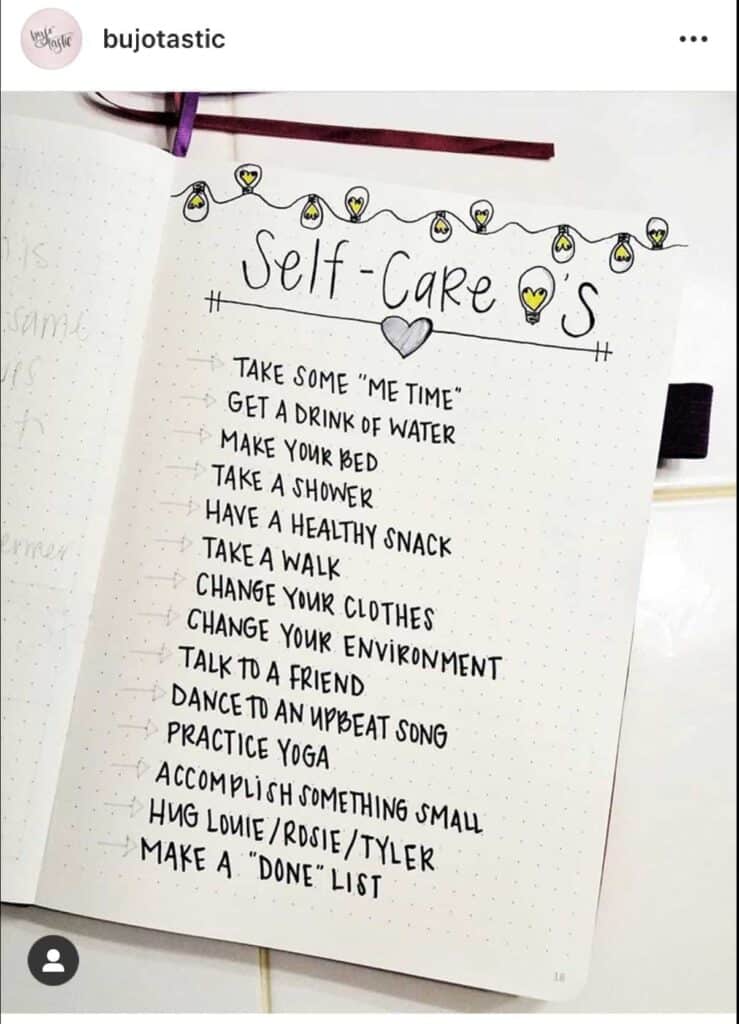 bujo tastic
bujotastic
Self-Care 's
TAKE SOME "ME TIME"
GET A DRINK OF WATER
MAKE YOUR BED
TAKE A SHOWER
HAVE A HEALTHY SNACK
TAKE A WALK
CHANGE YOUR CLOTHES
CHANGE YOUR ENVIRONMENT
TALK TO A FRIEND
DANCE TO AN UPBEAT SONG
PRACTICE YOGA
ACCOMPLISH SOMETHING SMALL
HUG LOUIE/ROSIE/TYLER
MAKE A "DONE" LIST
18
same